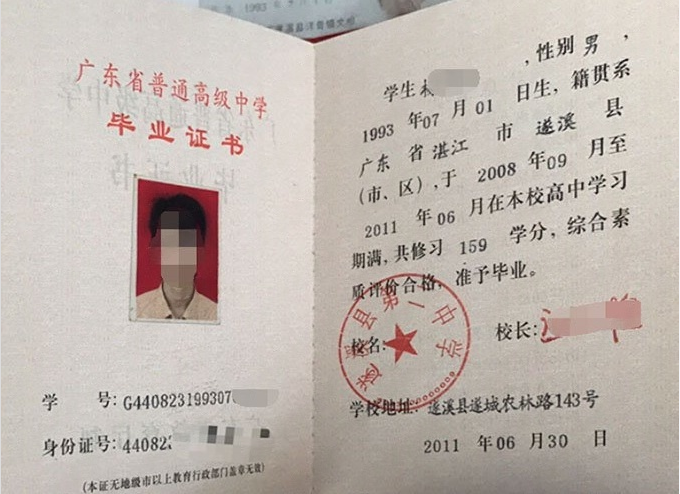 广东省普通高级中学
毕业证书
学 号: G44082319930
身份证号: 440823
(本证无地级市以上教育行政部门盖章无效)
学生        ,性别 男 ,
1993 年 07 月 01 日生, 籍贯系
广东 省 湛江 市 遂溪 县
(市、区),于 2008 年 09 月至
2011 年 06 月在本校高中学习
期满, 共修习 159 学分, 综合素
质评价合格, 准予毕业。
遂溪县第一中学
校名:
校长:
学校地址: 遂溪县遂城农林路143号
2011 年 06 月 30 日